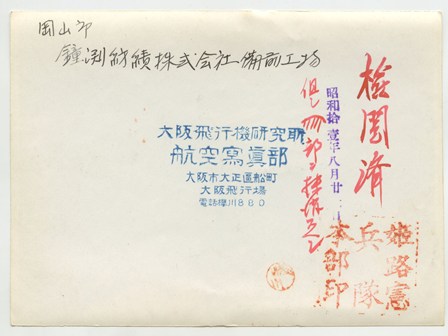 岡山市
鐘渕紡績株式会社備前工場
大阪飛行機研究所
航空寫眞部
大阪市大正區船町
大阪飛行場
電話櫻川880
檢閲濟
昭和拾壹年八月廿
姫路憲
兵隊
本部印